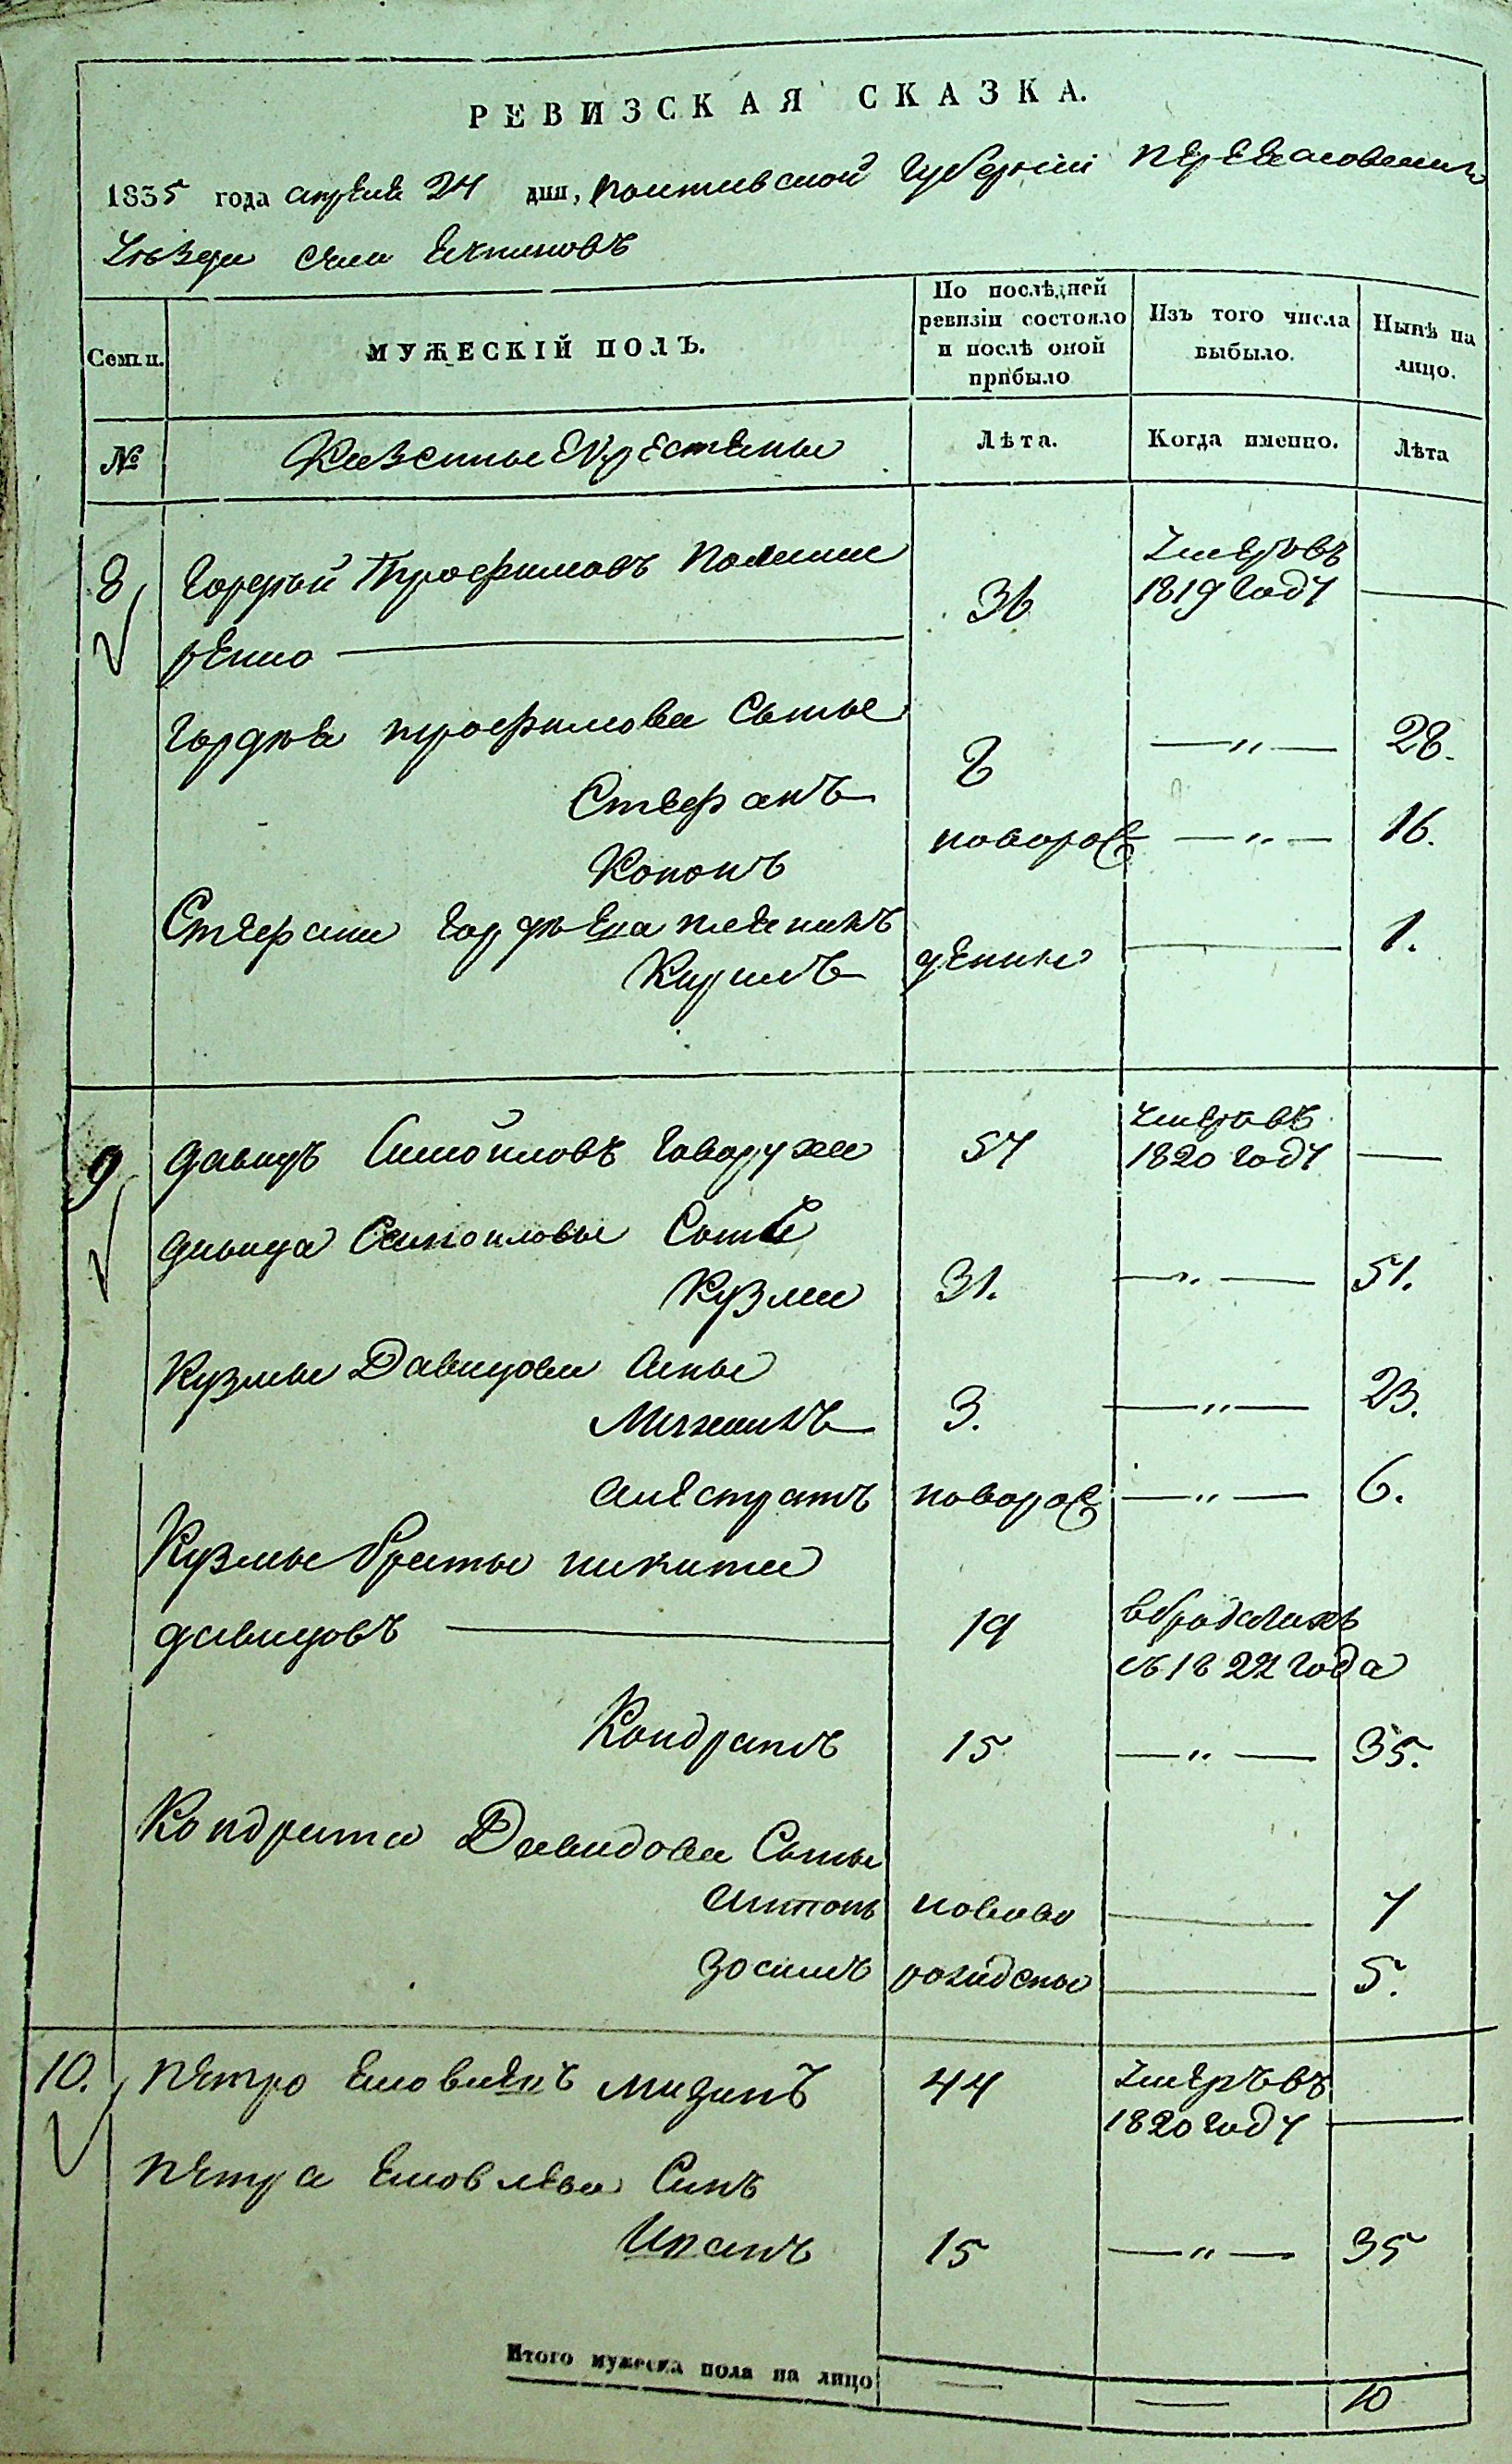 РЕВИЗСКАЯ СКАЗКА.
1835 года апреля 24 дня, полтавской губернии переяславскаго
уѣзда села
По послѣдней ревизіи состояло и послѣ оной прибыло
Изъ того числа выбыло.
Нынѣ на лицо.
Семьи.
МУЖЕСКІЙ ПОЛЪ.
№
Казенные крестяны
Лѣта.
Когда именно.
Лѣта
8 Гордѣй Трофимовъ 36 умеръ въ
1819 году —
ренко
Гордѣя трофимова сыны
Стефанъ 8 — „ — 28.
Кононъ новорос — „ — 16.
Стефана Гордѣева племеникъ
Кирилъ денны — 1.
9 давидъ Самойловъ Говоруха 57 умеръ въ
1820 году —
давида Самоиловы Сынъ
Кузма 31. — „ — 51.
Кузмы Давидова сыны
3. — „ — 23.
новорос — „ — 6.
Кузмы братья никита
давидовъ 19 в бродягахъ
съ 1822 года
Кондратъ 15 — „ — 35.
Кондрата Давидова Сыны
антонъ новово — 7
зосимъ рожденые — 5.
10. петро Яковлевъ мизинъ 44 умеръ въ
1820 году —
петра Яковлева Синъ
Иванъ 15 — „ — 35
Итого мужеска пола на лицо — — 10